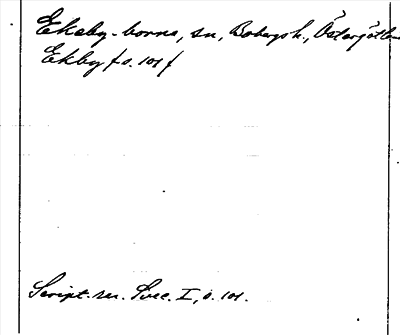 Ekeby-borna, sn, Bobergsh., Östergötlan
Ekby f s. 101 f
Script. rer. Svec. I, s. 101.